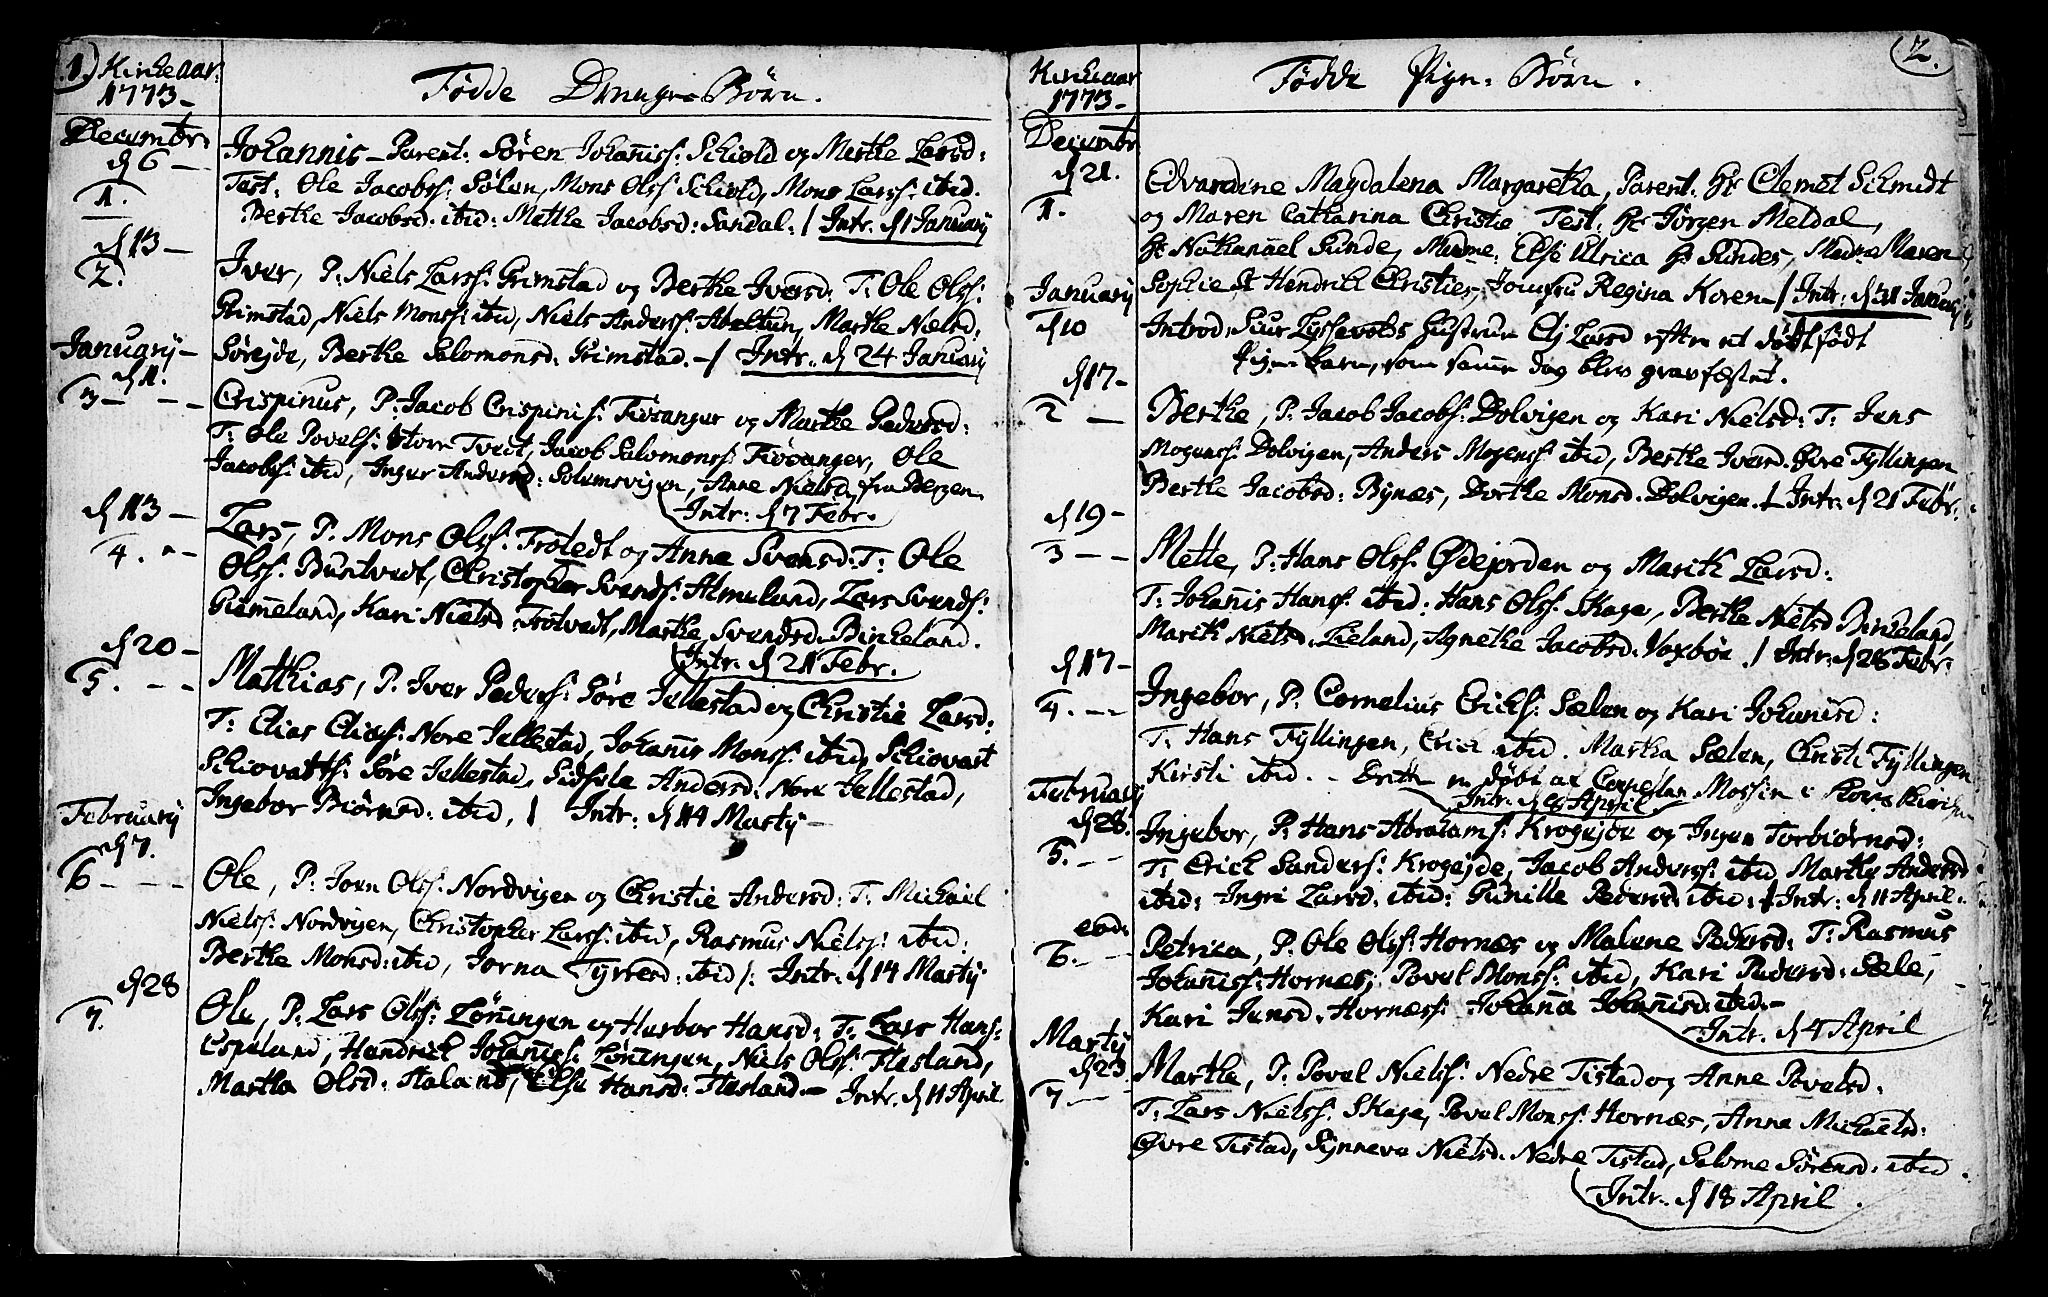 1.) Kirke aar
1773 -
Fødde Drenge-Børn.
Decembr:
d 6 -
1.
Johannis - Parent: Søren Johañiss: Schiold og Merthe Larsd:
Test: Ole Jacobss: Sølen, Mons Olss: Schiold, Mons Larss: ibid.
Berthe Jacobsd: ibid: Mette Jacobsd: Sandal: / Intr. d 1 January
d 13 -
2.
Iver, P: Niels Larss: Grimstad og Berthe Iversd: T: Ole Olss:
Grimstad, Niels Monss: ibid, Niels Anderss: Apeltun, Marthe Nielsd,
Sørejde, Berthe Salomonsd: Grimstad. - / Intr: d 24 January
January -
d 1.
3 - - -
Crispinus, P: Jacob Crispinis: Fiøsanger og Marthe Pedersd:
T: Ole Povels: Store Tvedt, Jacob Salomonss: Fiøsanger, Ole
Jacobss: ibid, Inger Andersd: Solemsvigen, Anne Nielsd fra Bergen
Intr: d 7 Febr.
d 13 -
4. - -
Lars, P. Mons Olss: Trotedt og Anne Svensd: T: Ole
Olss: Buntvedt, Christopher Svends: Almeland, Lars Svends:
Giæmeland, Kari Nielsd Trotvedt, Marthe Svendsd. Birkeland.
Intr. d 21 Febr.
d 20 -
5. - -
Mathias, P. Iver Peders: Søre Jellestad og Christie Larsd:
T: Elias Elias: Nore Jellestad, Johañis Monss: ibid, Schiovatt
Schiovatts: Søre Jellestad, Sidsele Andersd: Nore Jellestad,
Ingebor Biørnsd: ibid, / Intr: d 14 Marty -
February
d 7.
6 - - -
Ole, P: Joen Olss: Nordvigen og Christie Andersd: T: Michael
Nielss: Nordvigen, Christopher Larss: ibid, Rasmus Nielss: ibid:
Berthe Monsd: ibid, Jorna Tyrresd: ibid /: Intr: d 14 Marty
d 28
7.
Ole, P: Lars Olss: Løñingen og Herbor Hansd: T: Lars Hans:
Espeland, Hendrich Johañiss: Løñingen, Niels Olss: Flesland,
Martha Olsd: Haland, Else Hansd: Flesland - Intr. d 11 April
2.
Kirke aar
1773 -
Fødde Pige-Børn.
Decembr
d 21.
1.
Edvardine Magdalena Margaretha, Parent. Hr Clemet Schmidt
og Maren Catharina Christie. Test: Hr Jørgen Meldal,
Hr Nathanael Sunde, Madme: Else Ulrica Hr Sundes, Madme Maren
Sophie Hr Hendrich Christies, Jomfru Regina Koren - / Intr: d 31 January
January
d 10
Introd: Siur Lyssevolds Hustrue Elj Larsd efter et dødtfødt
Pige-barn, som samme dag blev gravfæstet.
d 17 -
2 -
Berthe, P: Jacob Jacobs: Dolvigen og Kari Nielsd: T: Jens
Mogenss: Dolvigen, Anders Mogenss: ibid, Berthe Iversd. Øvre Fyllingen
Berthe Jacobsd: Bynæs, Dorthe Monsd. Dolvigen. / Intr: d 21 Febr:
d 19 -
3 - -
Mette, P: Hans Olss: Ødejorden og Marith Larsd:
T: Johañis Hanss: ibid: Hans Olss: Skage, Berthe Nielsd Birkeland,
Marith Nielsd. Lieland, Agnethe Jacobsd: Voxbøe. / Intr: d 28 Febr:
d 17 -
4. - -
Ingebor, P. Cornelius Erichs: Sælen og Kari Johanisd:
T: Hans Fyllingen, Erich ibid. Martha Sælen, Christi Fyllingen
Kirsti ibid. - døbt af Capellan Mossin i Korskirken
Intr. d 9 April
February
d 28.
5. - -
Ingebor, P: Hans Abrahams: Krogejde og Inger Torbiørnsd:
T: Erich Sanders: Krogejde, Jacob Anderss: ibid Marthe Andersd
ibid: Ingri Larsd: ibid: Gunille Pedersd: ibid: / Intr: d 11 April.
eod:
6. - -
Petrica, P. Ole Olss: Hornæs og Malene Pedersd: T: Rasmus
Johañiss: Hornæs, Povel Monss: ibid, Kari Pedersd: Sæle,
Kari Jensd. Hornæs: Johaña Johañisd: ibid -
Intr. d 4 April
Marty
d 23
7 -
Marthe, P: Povel Nielss: Nedre Tistad og Anne Povelsd:
T: Lars Nielss: Skage, Povel Monss: Hornæs, Anne Michaelsd:
Øvre Tistad, Synneva Nielsd. Nedre Tistad, Salome Sørensd: ibid.
Intr. d 18 April.